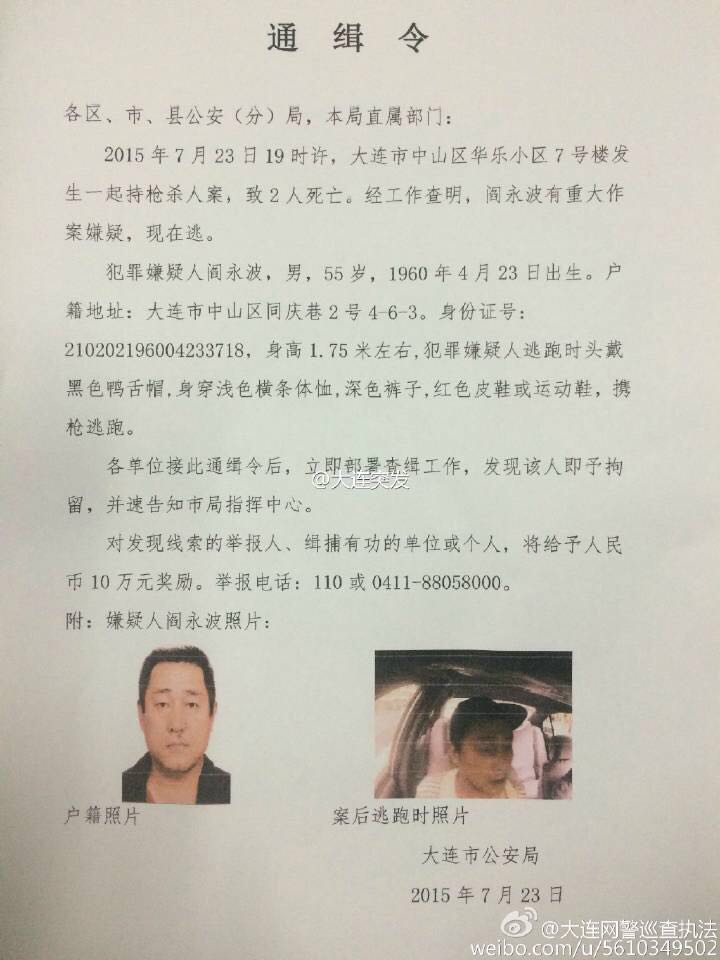 通 缉 令
各区、市、县公安（分）局，本局直属部门：
2015年7月23日19时许，大连市中山区华乐小区7号楼发
生一起持枪杀人案，致2人死亡。经工作查明，阎永波有重大作
案嫌疑，现在逃。
犯罪嫌疑人阎永波，男，55岁，1960年4月23日出生。户
籍地址：大连市中山区同庆巷2号4-6-3。身份证号：
210202196004233718，身高1.75米左右,犯罪嫌疑人逃跑时头戴
黑色鸭舌帽,身穿浅色横条体恤,深色裤子,红色皮鞋或运动鞋，携
枪逃跑。
各单位接此通缉令后，立即部署查缉工作，发现该人即予拘
@大连突发
留，并速告知市局指挥中心。
对发现线索的举报人、缉捕有功的单位或个人，将给予人民
币10万元奖励。举报电话：110或0411-88058000。
附：嫌疑人阎永波照片：
户籍照片
案后逃跑时照片
大连市公安局
2015年7月23日
@大连网警巡查执法
weibo.com/u/5610349502